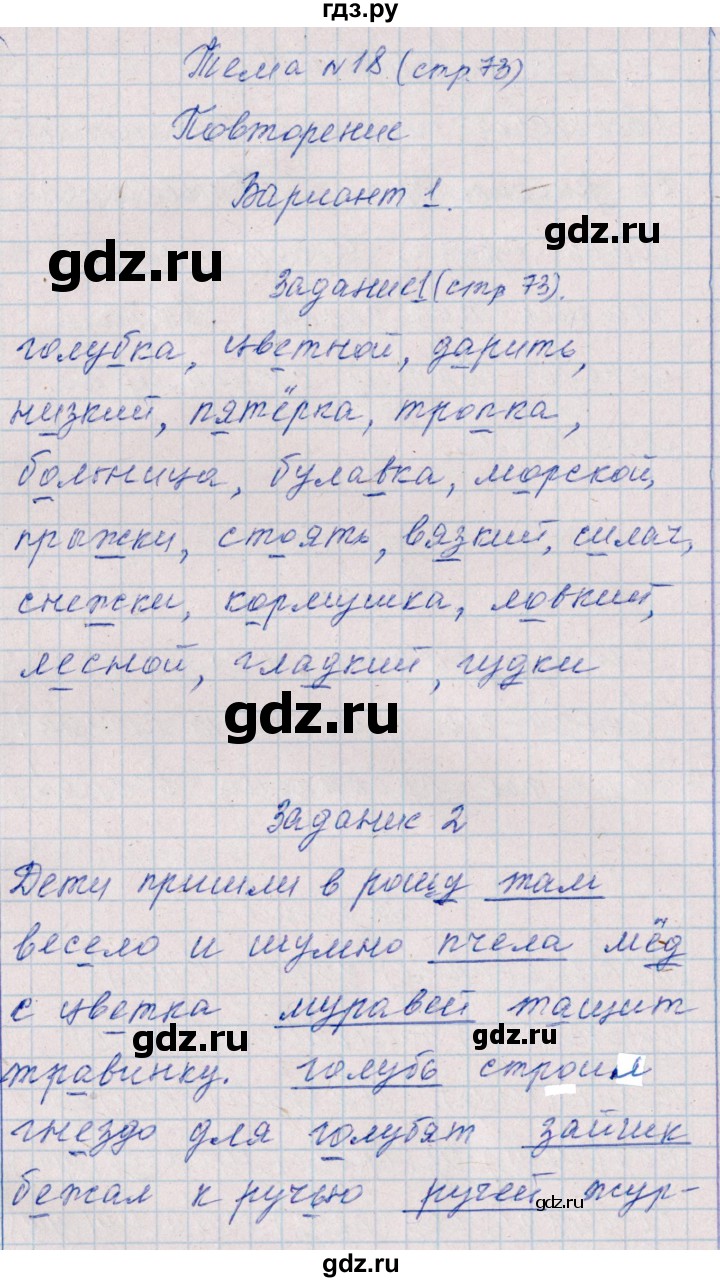 гдз.ру
Тема №18 (стр. 73)
Повторение
Вариант 1.
gdz.ru
gdz.ru
Задание 1 (стр 73).
голубка, цветной, дарить,
низкий, пятёрка, тропка,
больница, булавка, морской,
прыжки, стоять, вязкий, силач,
снежки, кормушка, ловкий,
лесной, гладкий, гудки
gdz.ru
Задание 2
Дети пришли в рощу там
весело и шумно пчела мёд
с цветка муравей тащит
gdz.ru
gdz.ru
травинку. голубь строил
гнездо для голубят зайчик
бежал к ручью ручей жур-
gdz.ru
gdz.ru